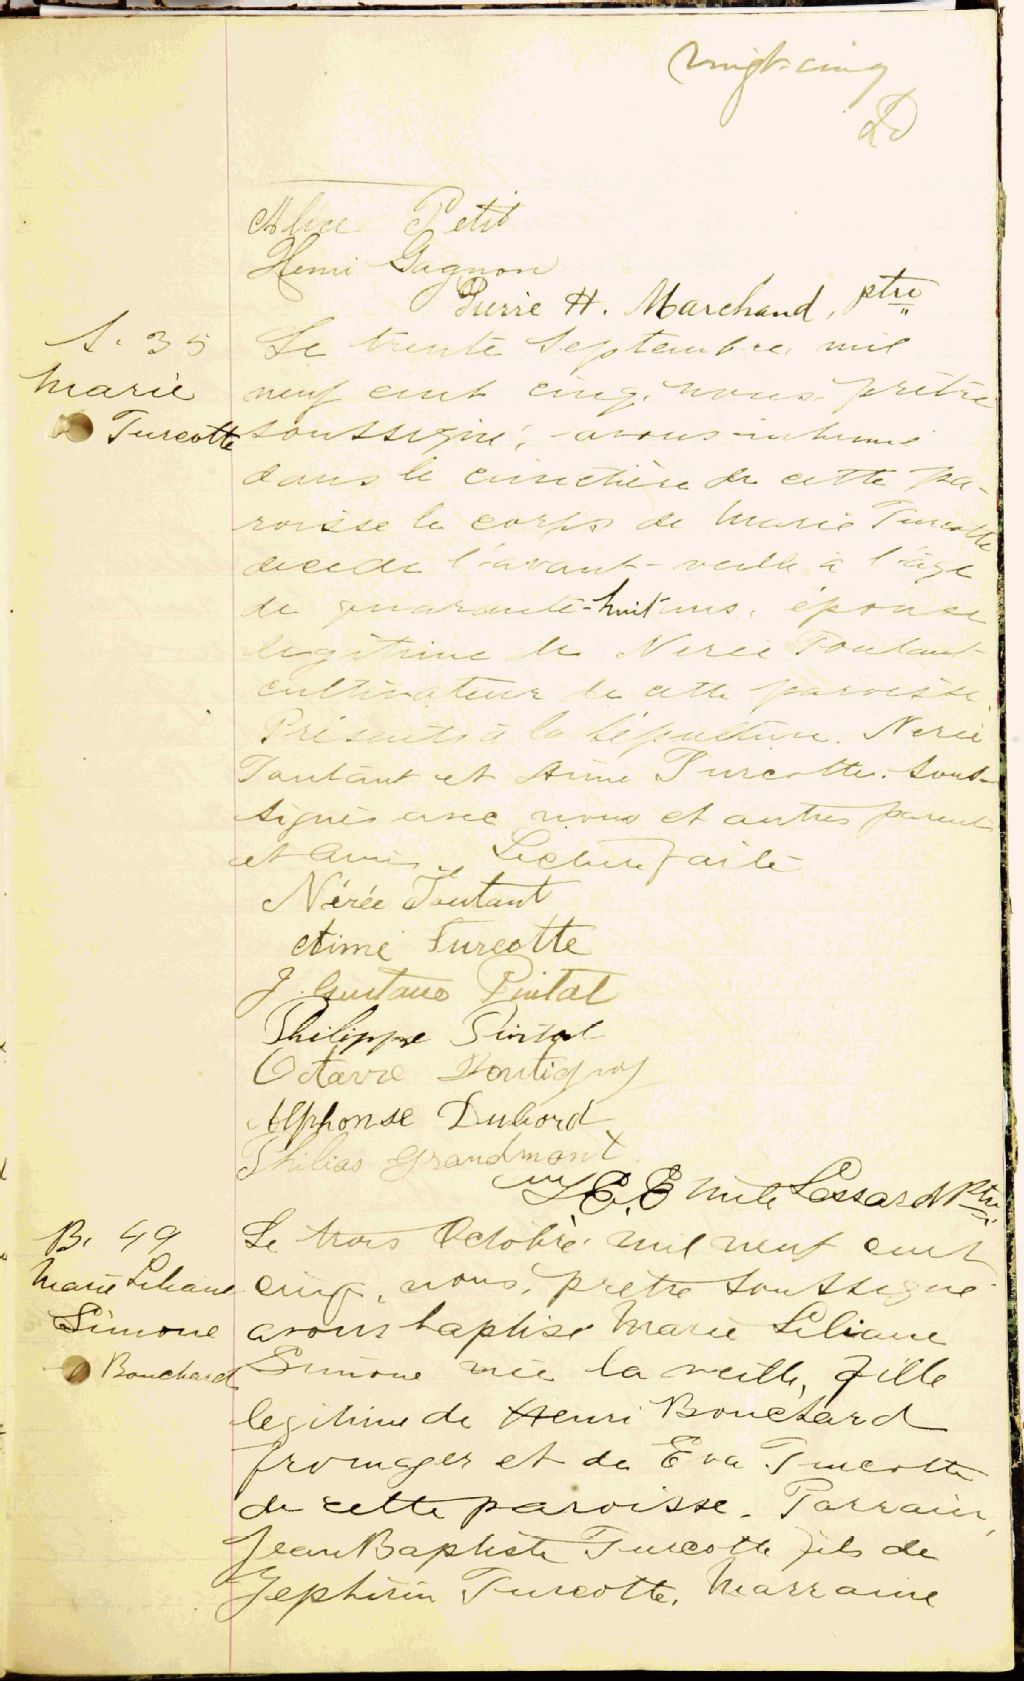 vingt-cinq
Alice Petit
Henri Gagnon
Pierre H. Marchand, ptre
S. 35
Marie
Turcotte
Le trente Septembre mil
neuf cent cinq, nous, prêtre
soussigné, avons inhumé
dans le cimetière de cette pa-
roisse le corps de Marie Turcotte
decede l'avant-veille à l'âge
de quarante-huit ans, épouse
legitime de Nérée Toutant
cultivateur de cette paroisse
Présents à la sépulture. Nérée
Toutant et Aimé Turcotte. sous-
signés avec nous et autres parents
et amis. Lecture faite
Nérée Toutant
Aimé Turcotte
J. Gustave Pintal
Philippe Pintal
Octave Rontigny
Alphonse Dubord
Philias Grandmont
Emile Lessard Ptre
B. 49
Marie Liliane
Simone
Bouchard
Le trois Octobre mil neuf cent
cinq, nous, prêtre soussigné
avons baptisé Marie Liliane
Simone née la veille, fille
legitime de Henri Bouchard
fromager et de Eva Turcotte
de cette paroisse. Parrain,
Jean Baptiste Turcotte fils de
Zephirin Turcotte. Marraine